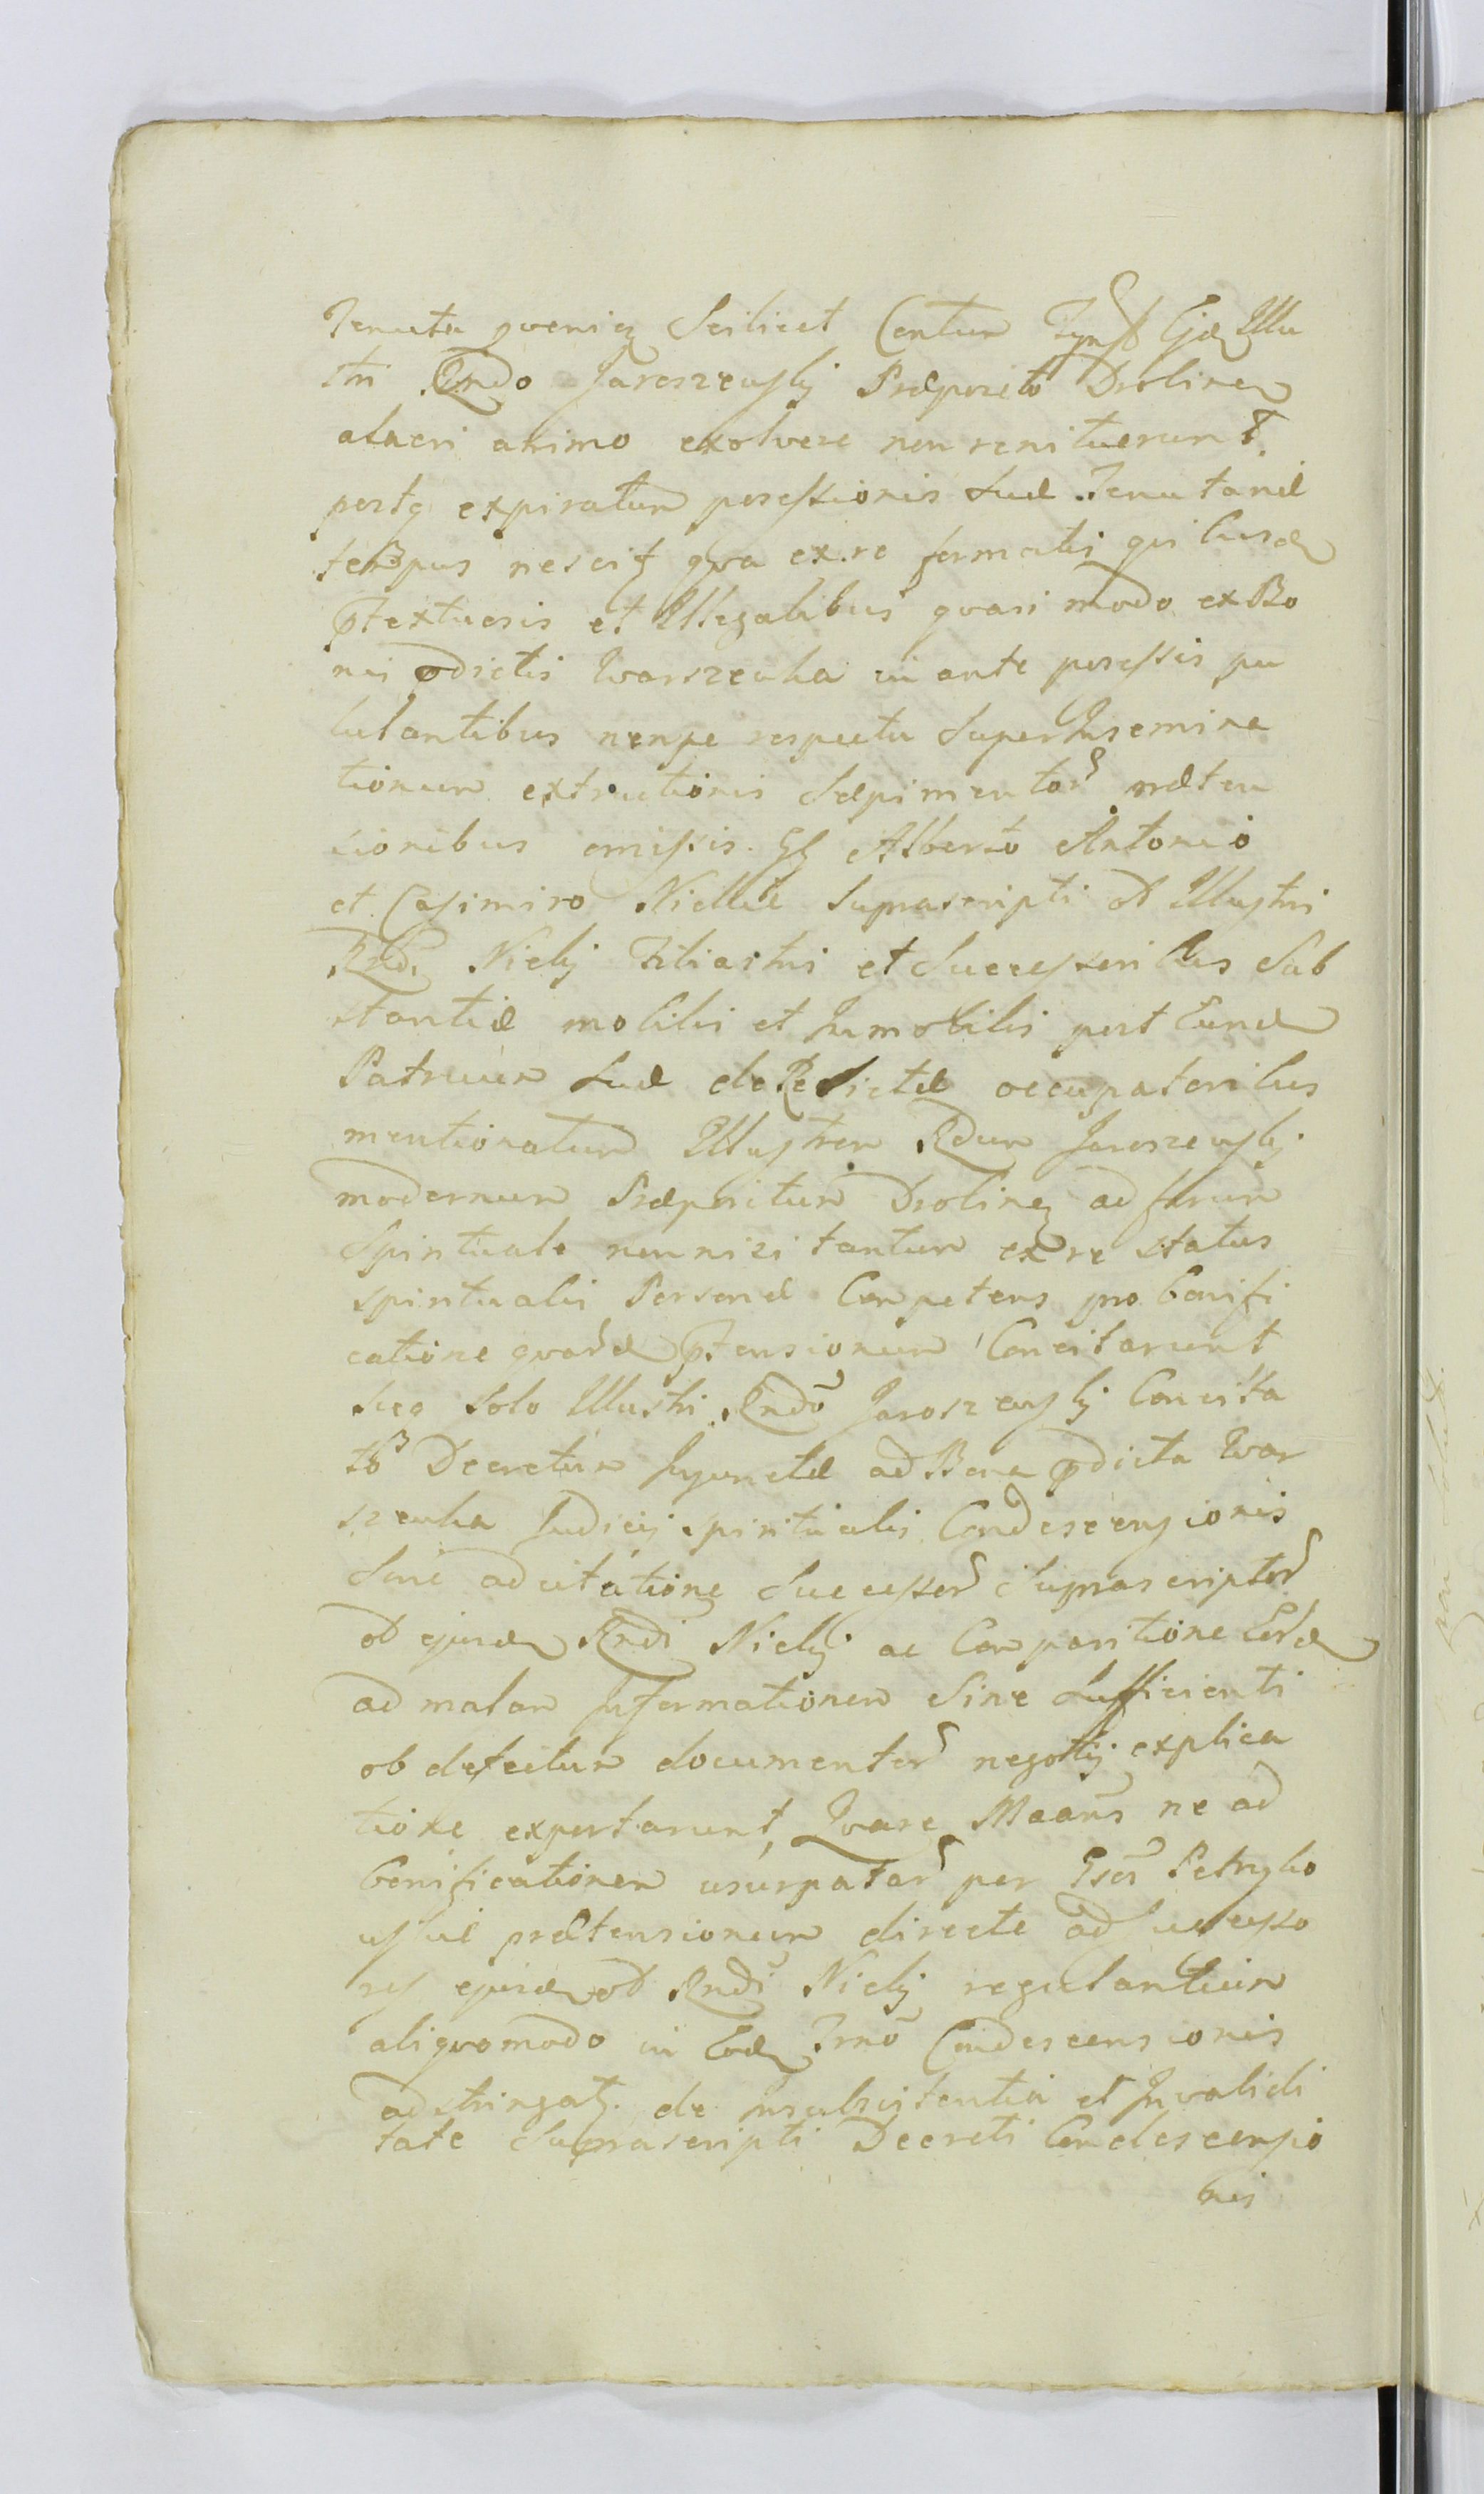 Tenuta qvenis Scilicet Centum Tynf Ejd Illu
stri Rndo Jaroszewski Præposito Drobinen
alacri animo exolvere non renituerunt.
postq expiratum possessionis suæ Tenutariæ
tempus nescitq qva ex re formatis quibusd
ptextuosis et Illegalibus qvasi modo ex Bo
nis pdictis Warszewka in ante possessis pu
lulantibus nempe respectu Super Insemina
tionum extructionis Sæpimentor præten
sionibus omissis GG Alberto Antonio
et Casimiro Nickie Suprascripti ol Illustri
Rndi Nicki Filiastris et Successoribus Sub
stantiæ mobilis et Immobilis post Eund
Patruum Suæ deRelictæ occupatoribus
mentionatum Illustrem Rdum Jaroszewski
modernum Præpositum Drobinen ad forum
Spirituale non nisi tantum ex re status
spiritualis Personæ Competens pro bonifi
catione qvard Ptensionum Concitarunt
sicq Solo Illustri Rndo Jaroszewski Concita
to Decretum Injunctæ ad Bona pdicta War
szewka Judicij Spiritualis Condescensionis
Sine adcitatione Successor Suprascriptor
ol ejusd Rndi Nicki ac Comparitione Eord
ad malam Informationem Sine Sufficienti
ob defectum documentor negotij explica
tione exportarunt, Qvare Maans ne ad
bonificationem usurpatar per Gsos Petryko
wskie prætensionum directe ad Successo
res ejusd ol Rndi Nicki regulantium
aliqvomodo in Eod Trno Condescensionis
adstringatq. de insubsistentia et Invalidi
tate Suprascripti Decreti Condescensio
nis